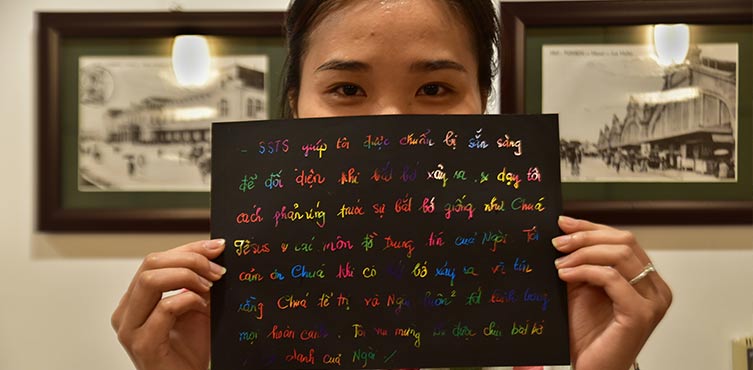 - SSTS giúp tôi được chuẩn bị sẵn sàng
để đối diện khi bắt bớ xảy ra & dạy tôi
cách phản ứng trước sự bắt bớ giống như Chúa
Jêsus & các môn đồ trung tín của Ngài. Tôi
cảm ơn Chúa khi có bớ xảy ra vì tin
rằng Chúa tể trị và Ngài luôn² tốt lành trong
mọi hoàn cảnh. Tôi vui mừng được chịu bắt bớ
danh của Ngài ./